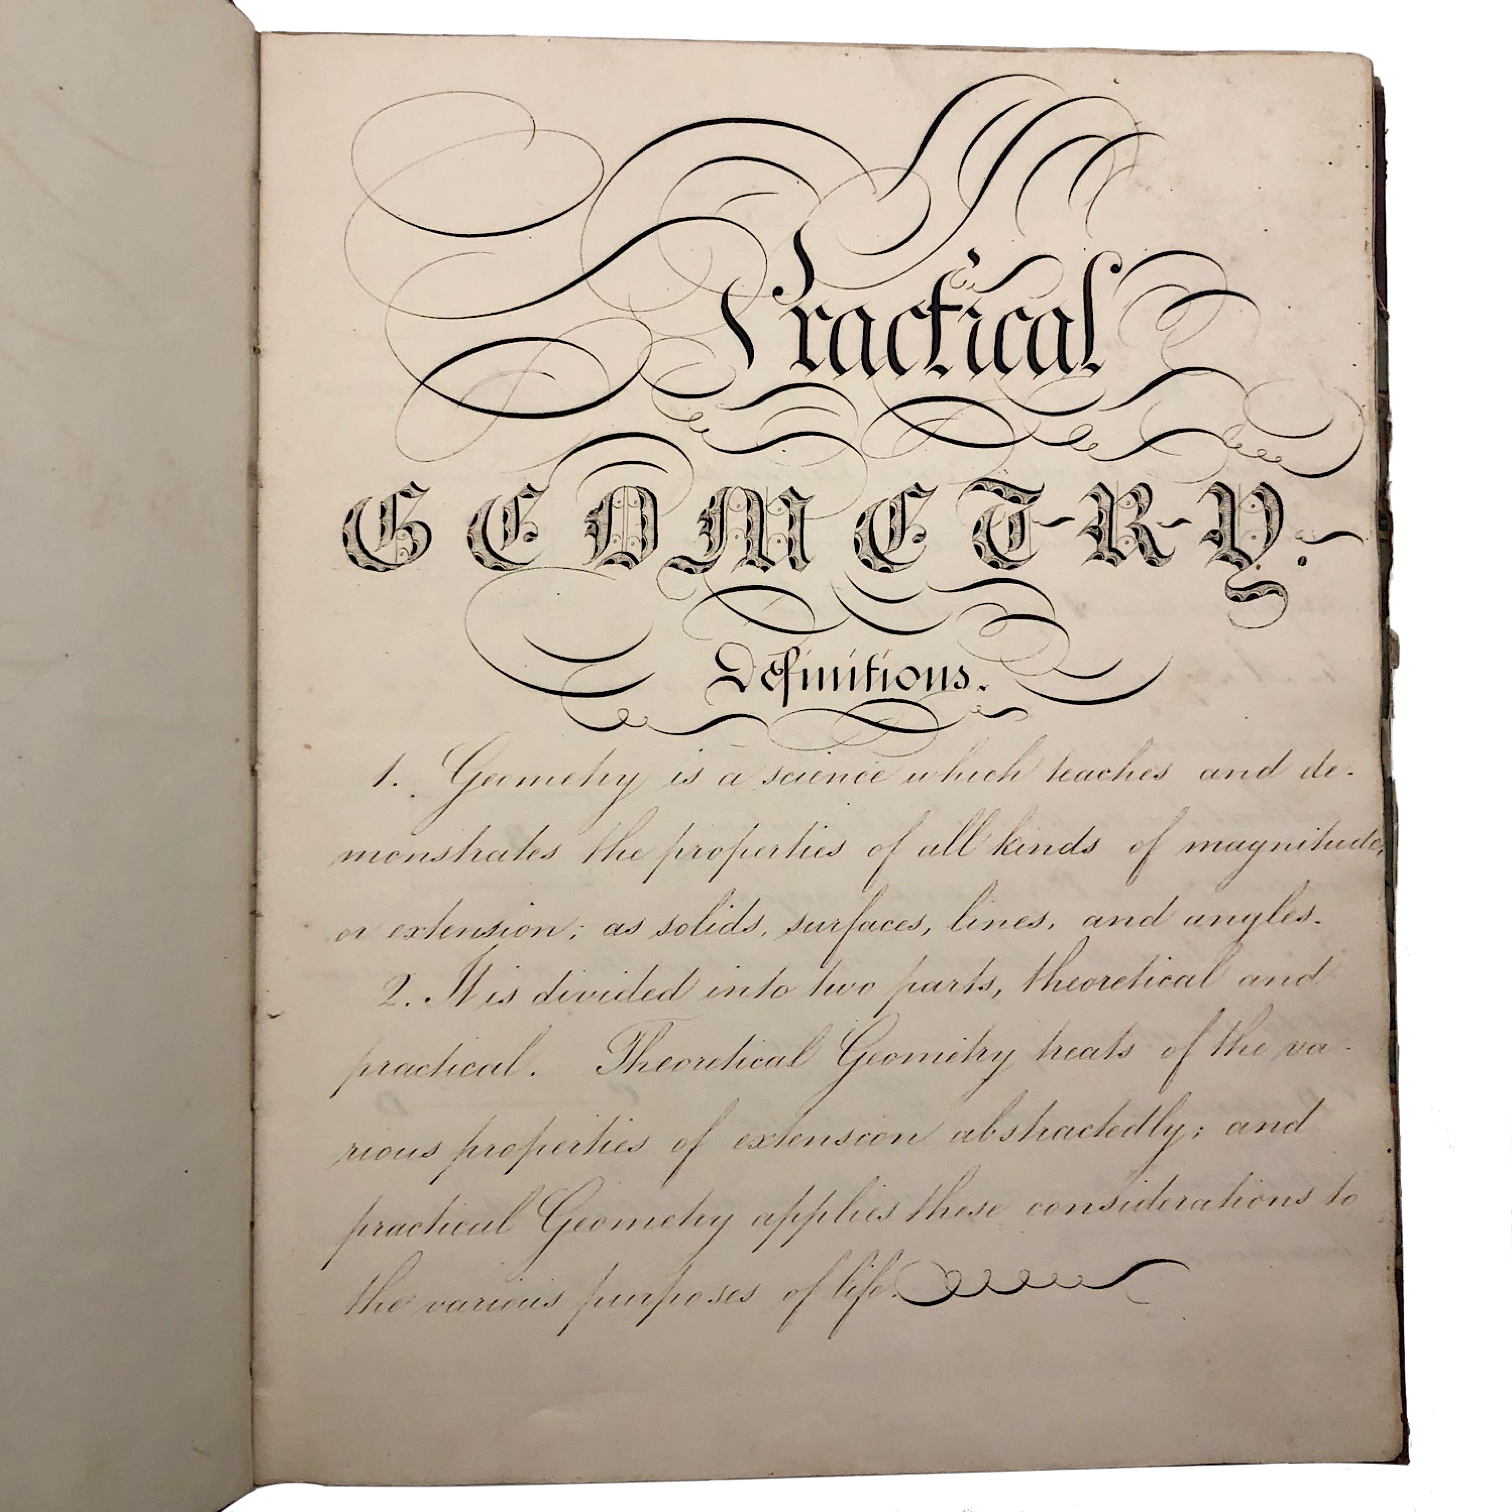 Practical
GEOMET-R-Y.-
Definitions.
1. Geometry is a science which teaches and de-
monstrates the properties of all kinds of magnitude,
or extension; as solids, surfaces, lines, and angles.
2. It is divided into two parts, theoretical and
practical. Theoretical Geometry treats of the va-
rious properties of extension abstractedly; and
practical Geometry applies these considerations to
the various purposes of life.